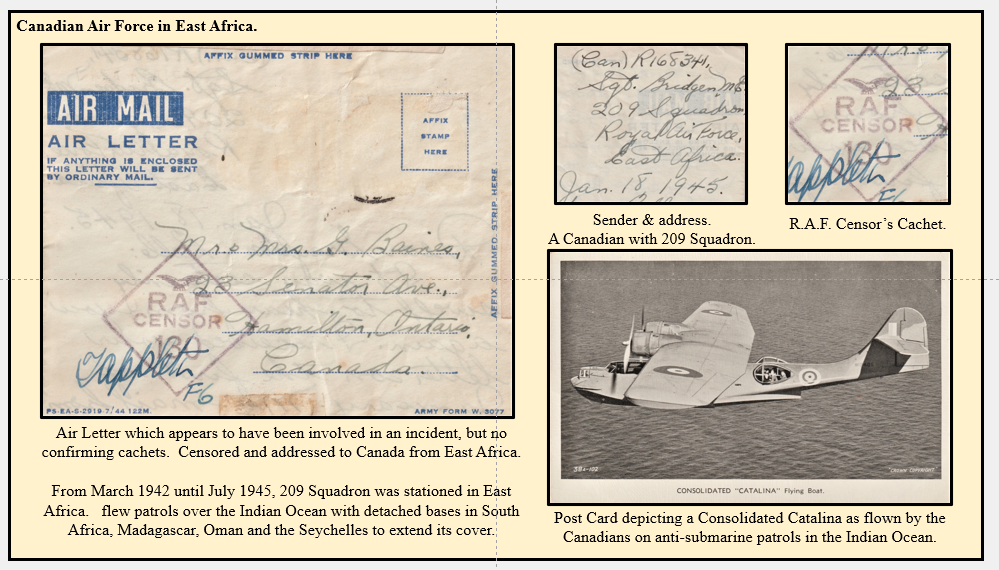 Canadian Air Force in East Africa.
AFFIX GUMMED STRIP HERE
AIR MAIL
AIR LETTER
IF ANYTHING IS ENCLOSED
THIS LETTER WILL BE SENT
BY ORDINARY MAIL.
AFFIX
STAMP
HERE
AFFIX GUMMED STRIP HERE
Mr. & Mrs. G. Baines,
23 Senator Ave.,
Hamilton, Ontario,
Canada.
RAF
CENSOR
180
F6
PS-EA-G-2019 7/44 122M.
ARMY FORM W. 3077
Air Letter which appears to have been involved in an incident, but no
confirming cachets. Censored and addressed to Canada from East Africa.
From March 1942 until July 1945, 209 Squadron was stationed in East
Africa. flew patrols over the Indian Ocean with detached bases in South
Africa, Madagascar, Oman and the Seychelles to extend its cover.
(Can) R168341.
Sgt. Bridgen
209 Squadron,
Royal Air Force,
East Africa.
Jan. 18, 1945.
Sender & address.
A Canadian with 209 Squadron.
23
RAF
CENSOR
180
F6
R.A.F. Censor's Cachet.
CROWN COPYRIGHT
CONSOLIDATED "CATALINA" Flying Boat.
Post Card depicting a Consolidated Catalina as flown by the
Canadians on anti-submarine patrols in the Indian Ocean.